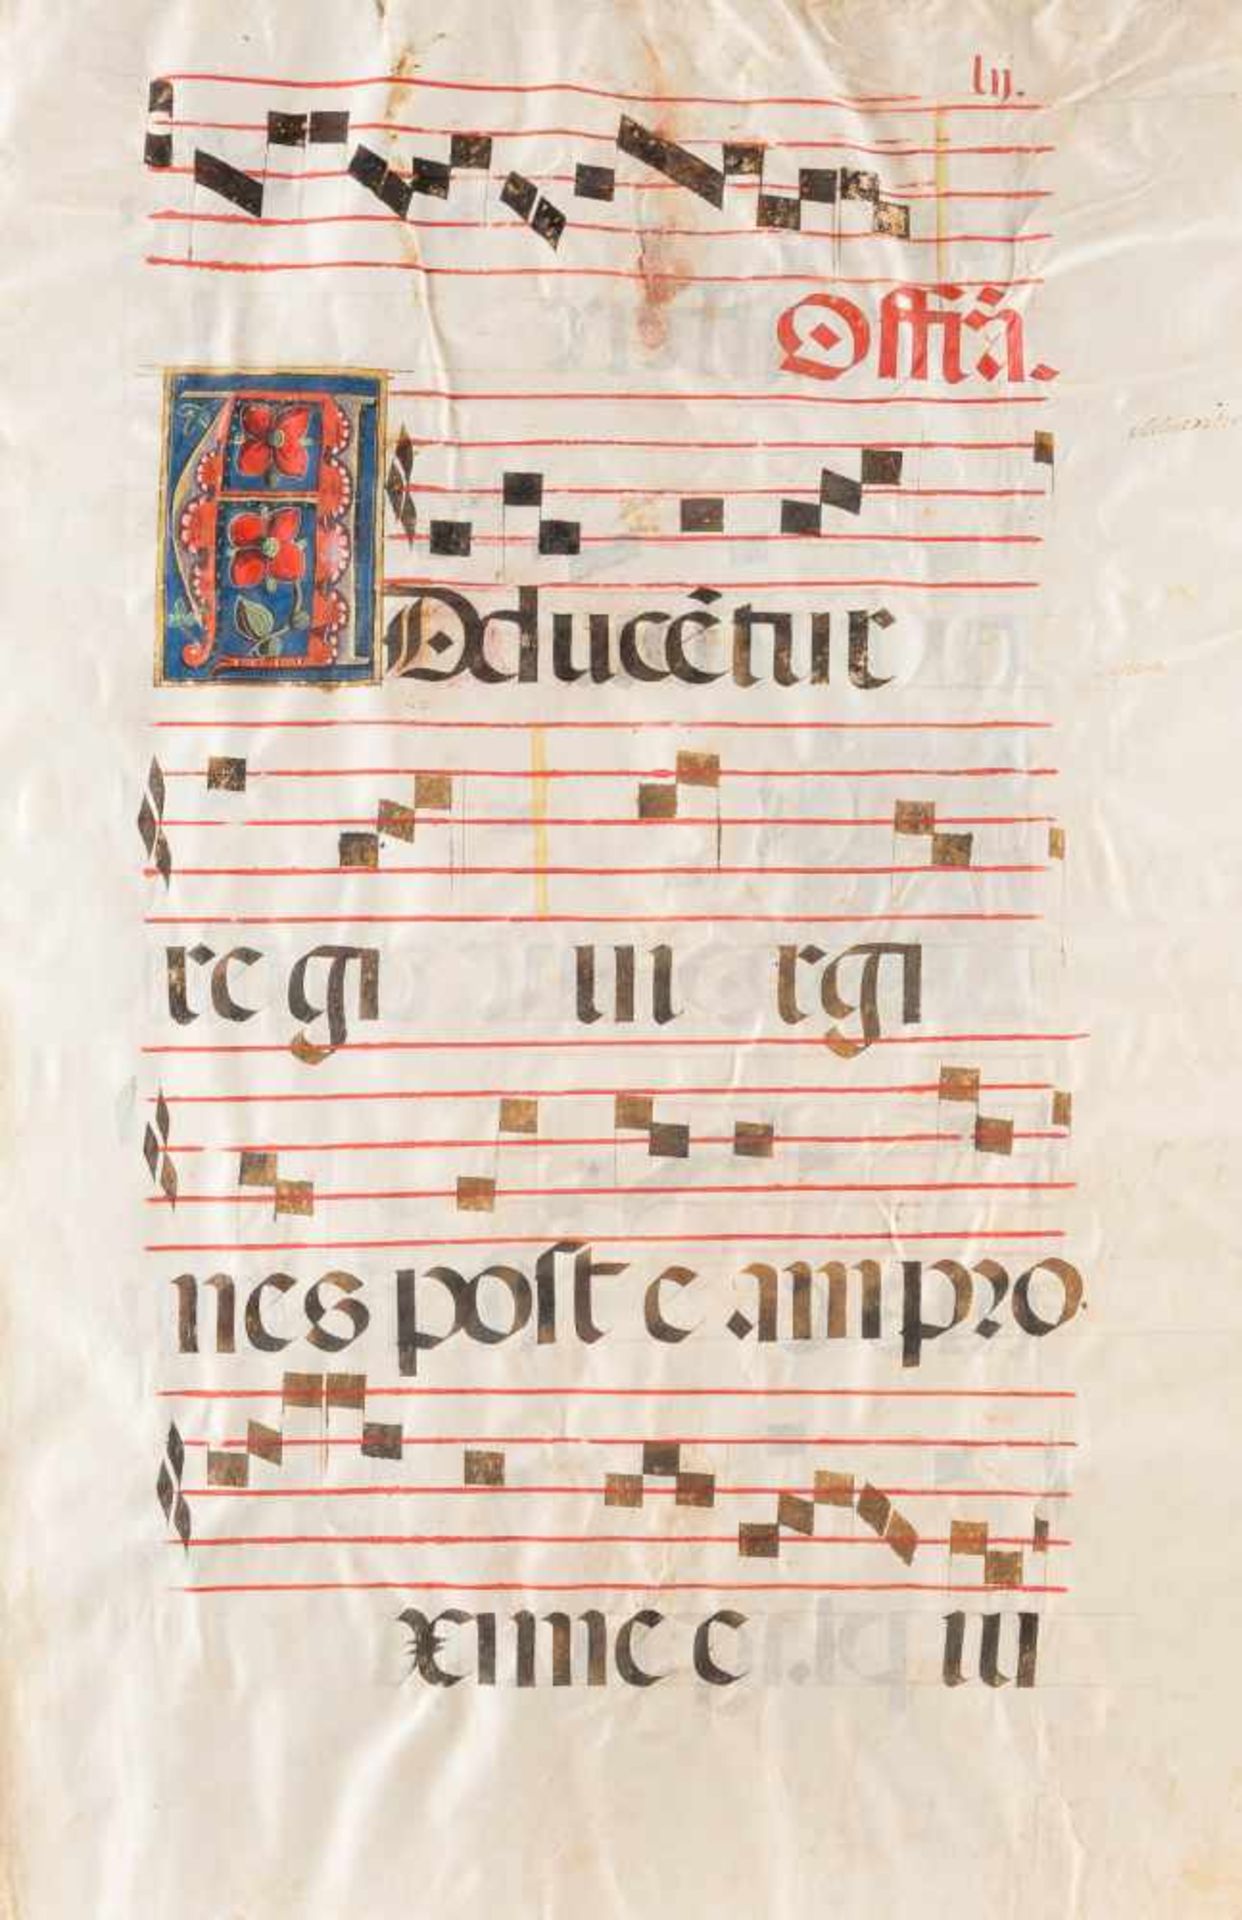 lij.
Offia.
ADducētur
re gi ui rgi
nes post e am pro
xime e iu